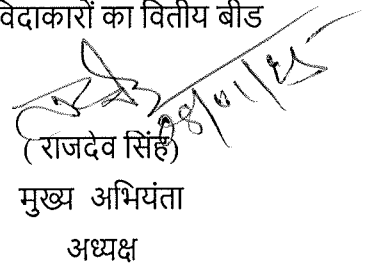 विदाकारों का वितीय बीड
( राजदेव सिंह)
मुख्य अभियंता
अध्यक्ष